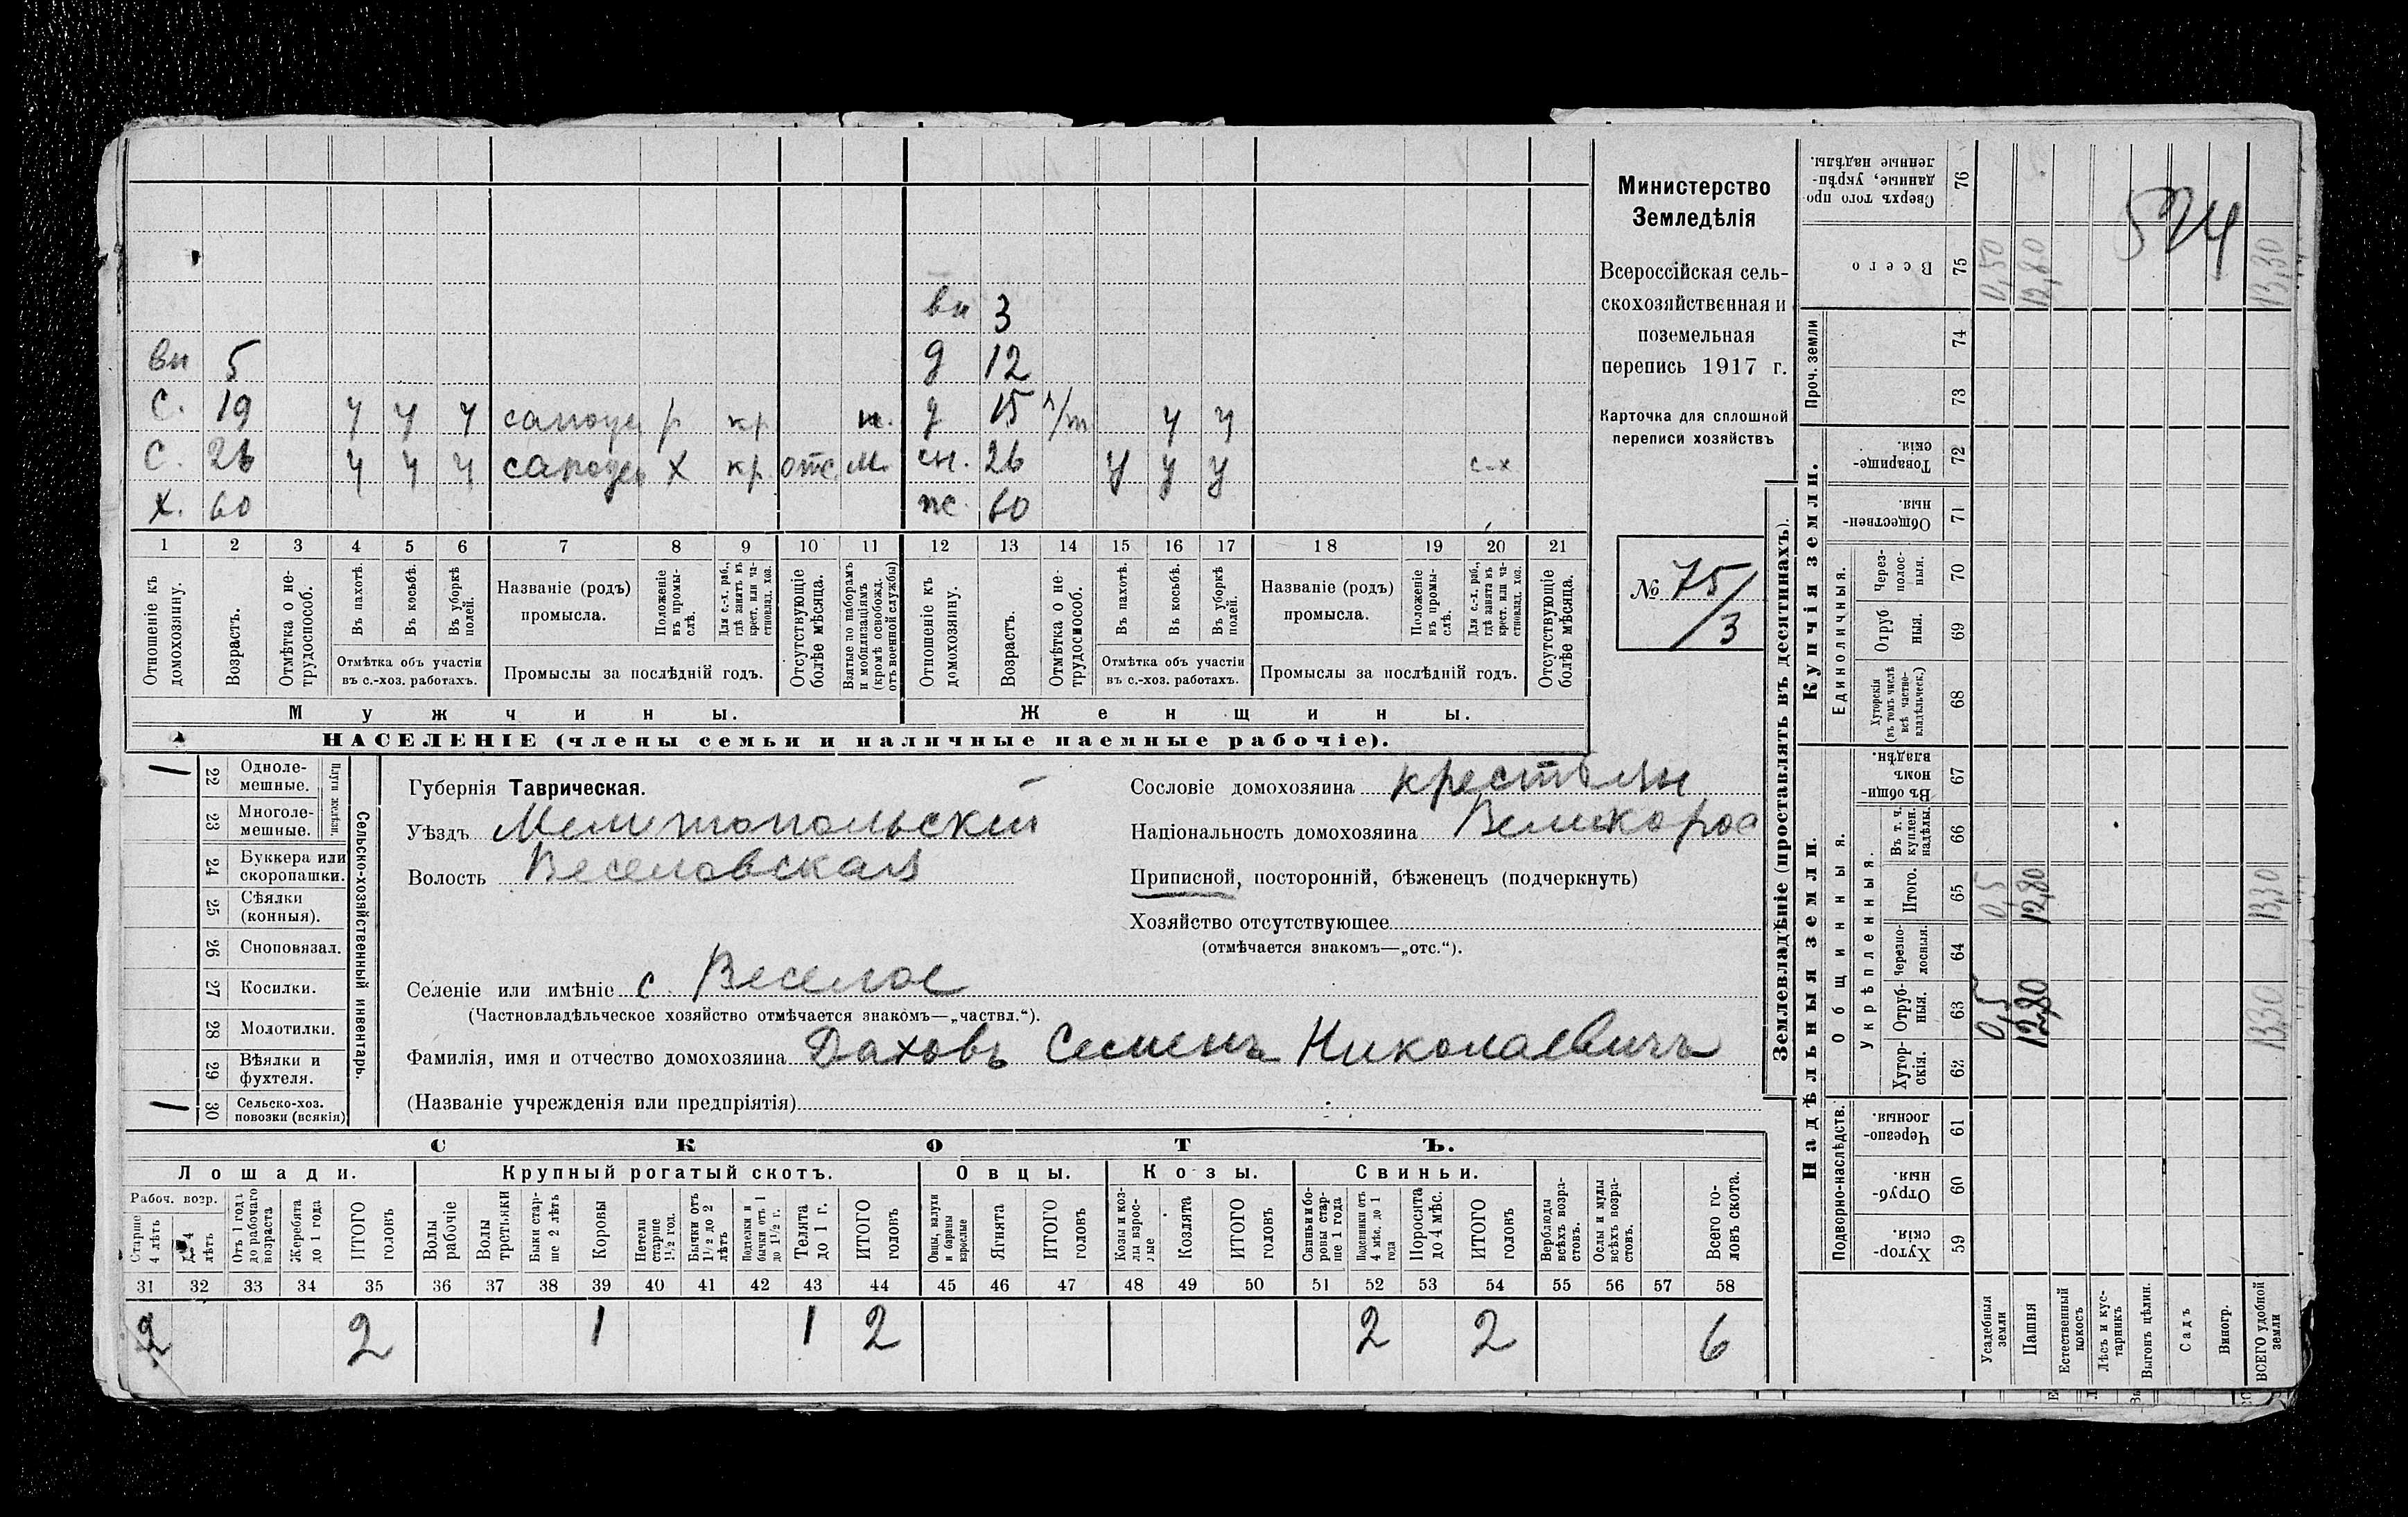 вн 3
вн 5 д 12
С. 19 ч ч ч р кр д 15 п/т ч ч
С. 26 ч ч ч Х кр отс. м. сн. 26 у у у с-х
Х. 60 ж 60
1 2 3 4 5 6 7 8 9 10 11 12 13 14 15 16 17 18 19 20 21
Отношеніе къ домохозяину.
Возрастъ.
Отмѣтка о нетрудоспособ.
Въ пахотѣ.
Въ косьбѣ.
Въ уборкѣ полей.
Отмѣтка объ участіи
въ с.-хоз. работахъ.
Названіе (родъ)
промысла.
Положеніе въ промыслѣ.
Для с.-х. раб., гдѣ занятъ въ крест. или частновлад. хоз.
Промыслы за послѣдній годъ.
Отсутствующіе болѣе мѣсяца.
Взятые по наборамъ и мобилизаціямъ (кромѣ освобожд. отъ военной службы)
Отношеніе къ домохозяину.
Возрастъ.
Отмѣтка о нетрудоспособ.
Въ пахотѣ.
Въ косьбѣ.
Въ уборкѣ полей.
Отмѣтка объ участіи
въ с.-хоз. работахъ.
Названіе (родъ)
промысла.
Положеніе въ промыслѣ.
Для с.-х. раб., гдѣ занятъ въ крест. или частновлад. хоз.
Промыслы за послѣдній годъ.
Отсутствующіе болѣе мѣсяца.
Мужчины. Женщины.
НАСЕЛЕНІЕ (члены семьи и наличные наемные рабочіе).
Министерство
Земледѣлія
Всероссійская сель-
скохозяйственная и
поземельная
перепись 1917 г.
Карточка для сплошной
переписи хозяйствъ
№ 75/3
1 22 Одноле-
мешные.
23 Многоле-
мешные.
Плуги желѣзн.
24 Буккера или
скоропашки.
25 Сѣялки
(конныя).
26 Сноповязал.
27 Косилки.
28 Молотилки.
29 Вѣялки и
фухтеля.
1 30 Сельско-хоз.
повозки (всякія)
Сельско-хозяйственный инвентарь.
Губернія Таврическая.
Уѣздъ Мелитопольскій
Волость Веселовская
Сословіе домохозяина крестьян
Національность домохозяина Великорос
Приписной, посторонній, бѣженецъ (подчеркнуть)
Хозяйство отсутствующее
(отмѣчается знакомъ—„отс.“).
Селеніе или имѣніе с. Веселое
(Частновладѣльческое хозяйство отмѣчается знакомъ—„частвл.“).
Фамилія, имя и отчество домохозяина Даховъ Семенъ Николаевичъ
(Названіе учрежденія или предпріятія)
СКОТЪ.
Лошади. Крупный рогатый скотъ. Овцы. Козы. Свиньи.
Рабоч. возр.
Старше 4 лѣтъ
До 4 лѣтъ
Отъ 1 года до рабочаго возраста
Жеребята до 1 года
ИТОГО головъ
Волы рабочіе
Волы третьяки
Быки старше 2 лѣтъ
Коровы
Нетели старше 1½ год.
Бычки отъ 1½ до 2 лѣтъ
Подтелки и бычки отъ 1 до 1½ г.
Телята до 1 г.
ИТОГО головъ
Овцы, валухи и бараны взрослые
Ягнята
ИТОГО головъ
Козы и козлы взрослые
Козлята
ИТОГО головъ
Свиньи и боровы старше 1 года
Подсвинки отъ 4 мѣс. до 1 года
Поросята до 4 мѣс.
ИТОГО головъ
Верблюды всѣхъ возрастовъ.
Ослы и мулы всѣхъ возрастовъ.
Всего головъ скота.
31 32 33 34 35 36 37 38 39 40 41 42 43 44 45 46 47 48 49 50 51 52 53 54 55 56 57 58
2 2 1 1 2 2 2 6
Землевладѣніе (проставлять въ десятинахъ).
Надѣльныя земли. Купчія земли.
Подворно-наслѣдств.
Общинныя.
Укрѣпленныя.
Единоличныя.
Проч. земли
Хуторскія. 59
Отрубныя. 60
Черезполосныя. 61
Хуторскія. 62
Отрубныя. 63 0,5 12,80 13.30
Черезполосныя. 64
Итого. 65 0,5 12,80 13,30
Въ т. ч. куплен. надѣлы. 66
Въ общинномъ владѣн. 67
Хуторскія (въ томъ числѣ всѣ частновладѣльческ.) 68
Отрубныя. 69
Черезполосныя. 70
Общественныя. 71
Товарищескія. 72
73
74
Всего 75 0,50 12,80 13,30
Сверхъ того проданные, укрѣпленные надѣлы. 76
574
Усадебныя земли
Пашня
Естественный покосъ
Лѣсъ и кустарникъ
Выгонъ цѣлин.
Садъ
Виногр.
ВСЕГО удобной земли